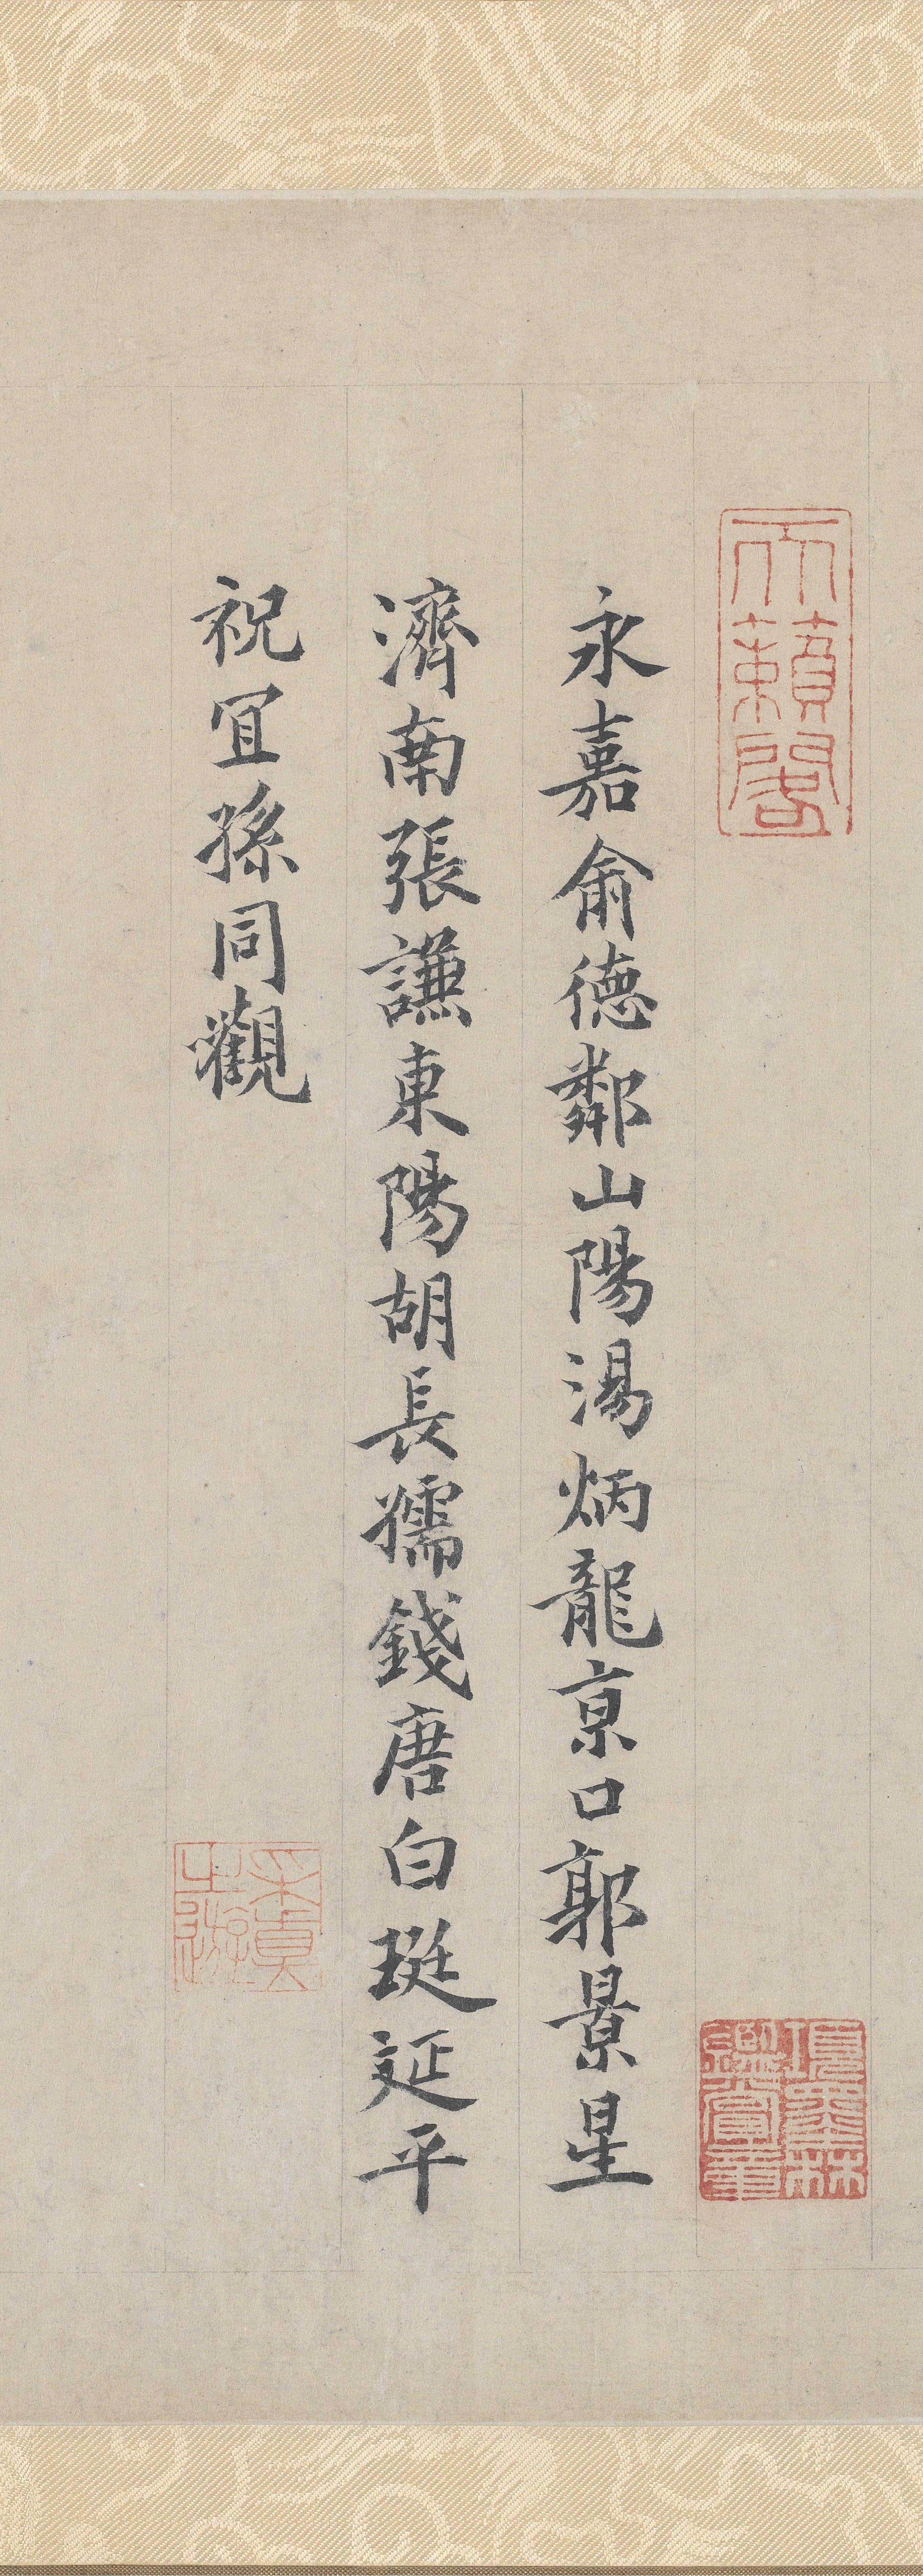 天籟閣
項墨林鑑賞章
永嘉俞德鄰山陽湯炳龍京口郭景星
濟南張謙東陽胡長孺錢唐白珽延平
祝宜孫同觀
采真之游